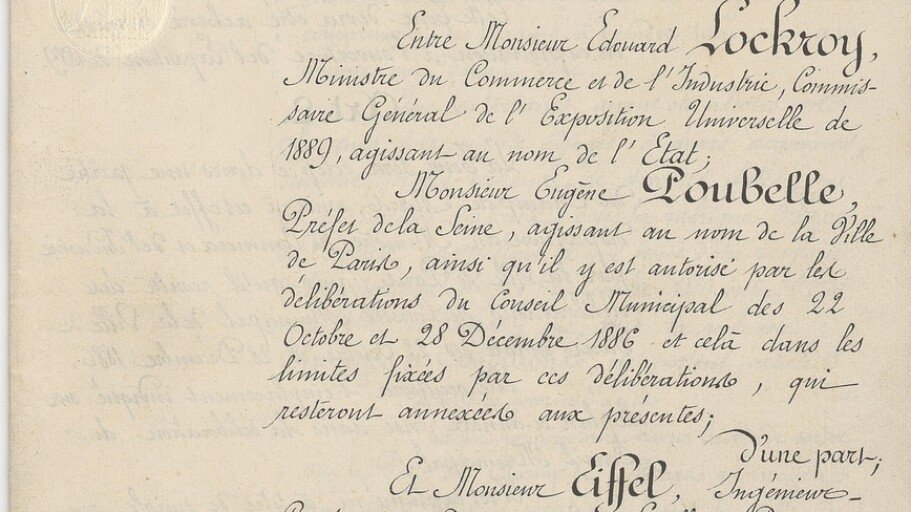 Entre Monsieur Edouard Lockroy,
Ministre du Commerce et de l'Industrie, Commis-
saire Général de l'Exposition Universelle de
1889, agissant au nom de l'Etat;
Monsieur Eugène Poubelle,
Préfet de la Seine, agissant au nom de la Ville
de Paris, ainsi qu'il y est autorisé par les
délibérations du Conseil Municipal des 22
Octobre et 28 Décembre 1886 et celà dans les
limites fixées par ces délibérations, qui
resteront annexées aux présentes;
d'une part;
Et Monsieur Eiffel, Ingénieur-